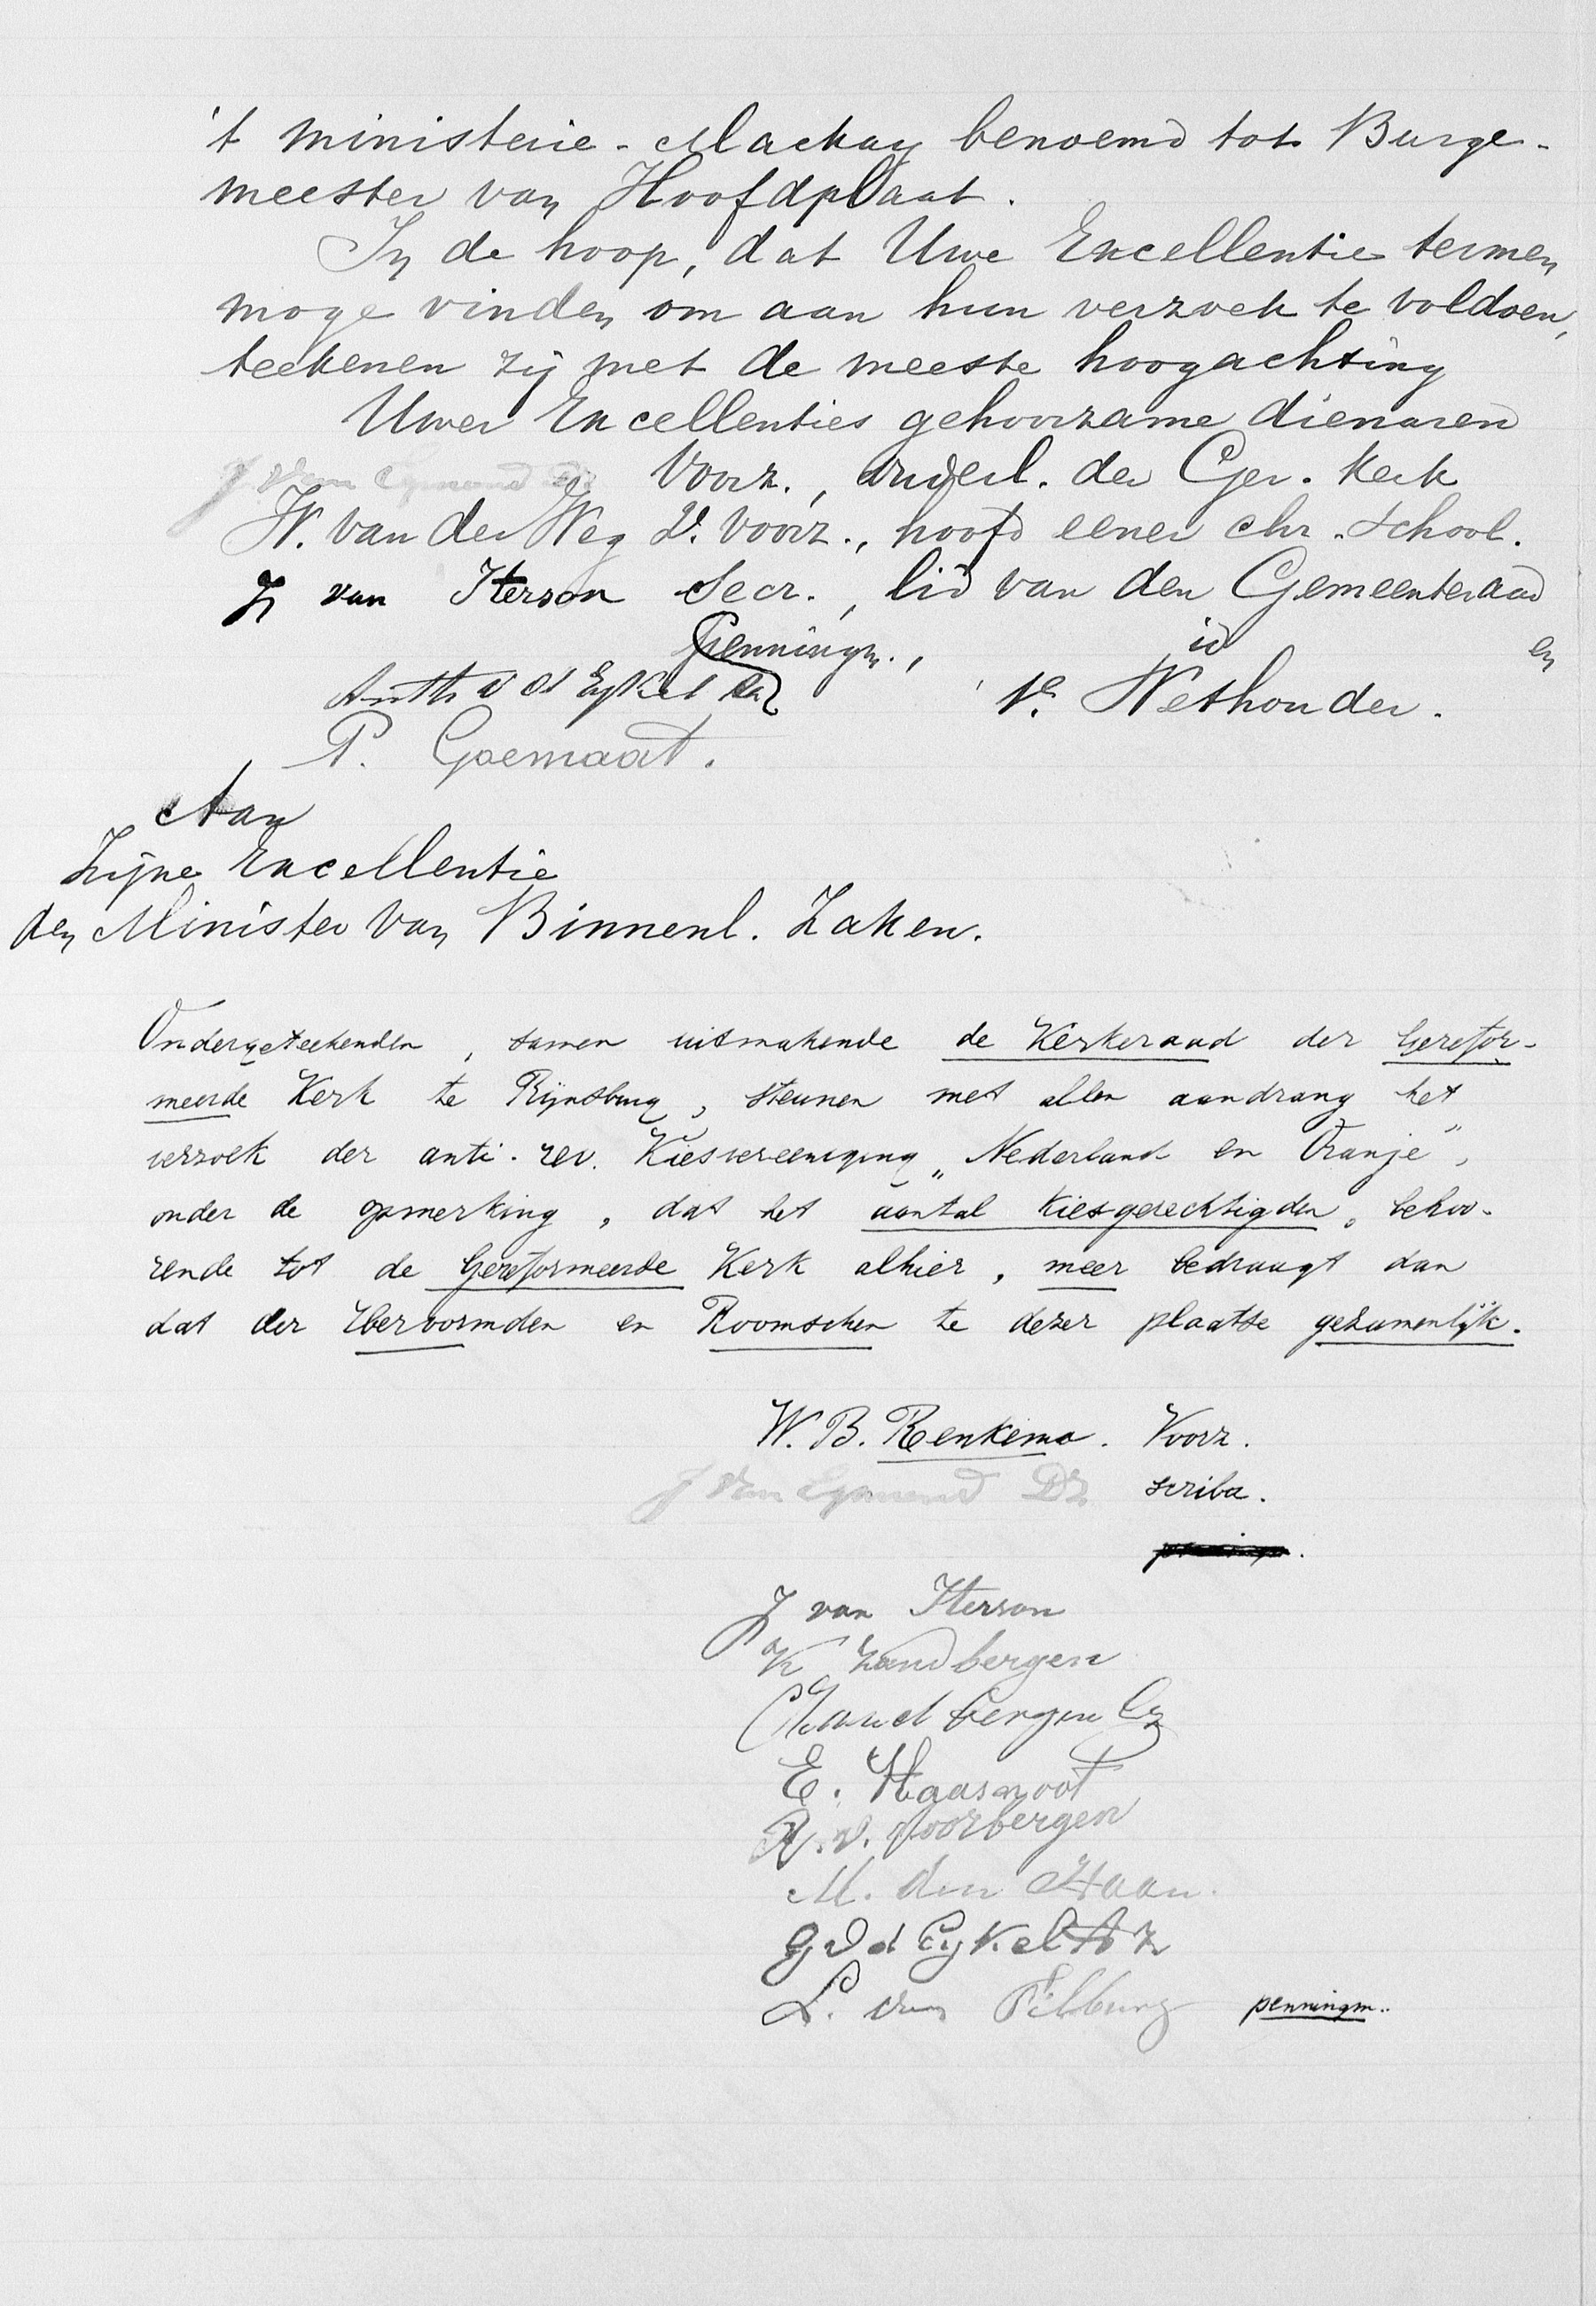 't Ministerie-Mackay benoemd tot Burge-
meester van Hoofdplaat.
In de hoop, dat Uwe Excellentie termen
moge vinden om aan hun verzoek te voldoen,
teekenen zij met de meeste hoogachting
Uwer Excellenties gehoorzame dienaren
J van Egmond Dz Voorz., ouderl. der Ger. Kerk
W. van der Weg 2e. Voorz., hoofd eener chr. School.
J van Iterson Secr., lid van den Gemeenteraad
Penningm., id en
Anth v d Eykel 1e. Wethouder.
P. Goemaat.
Aan
Zijne Excellentie
den Minister van Binnenl. Zaken.
Ondergeteekenden, samen uitmakende de Kerkeraad der Gerefor-
meerde Kerk te Rijnsburg, steunen met allen aandrang het
verzoek der anti-rev. Kiesvereeniging „Nederland en Oranje",
onder de opmerking, dat het aantal kiesgerechtigden, behoo-
rende tot de Gereformeerde Kerk alhier, meer bedraagt dan
dat der Hervormden en Roomschen te dezer plaatse gezamenlijk.
W. B. Renkema. Voorz.
J van Egmond Dz scriba.
J van Iterson
K Zandbergen
Zandbergen Cz
E. Haasnoot
R. v. Voorbergen
M. den Haan.
G v d Eykel Az
L. van Tilburg penningm..